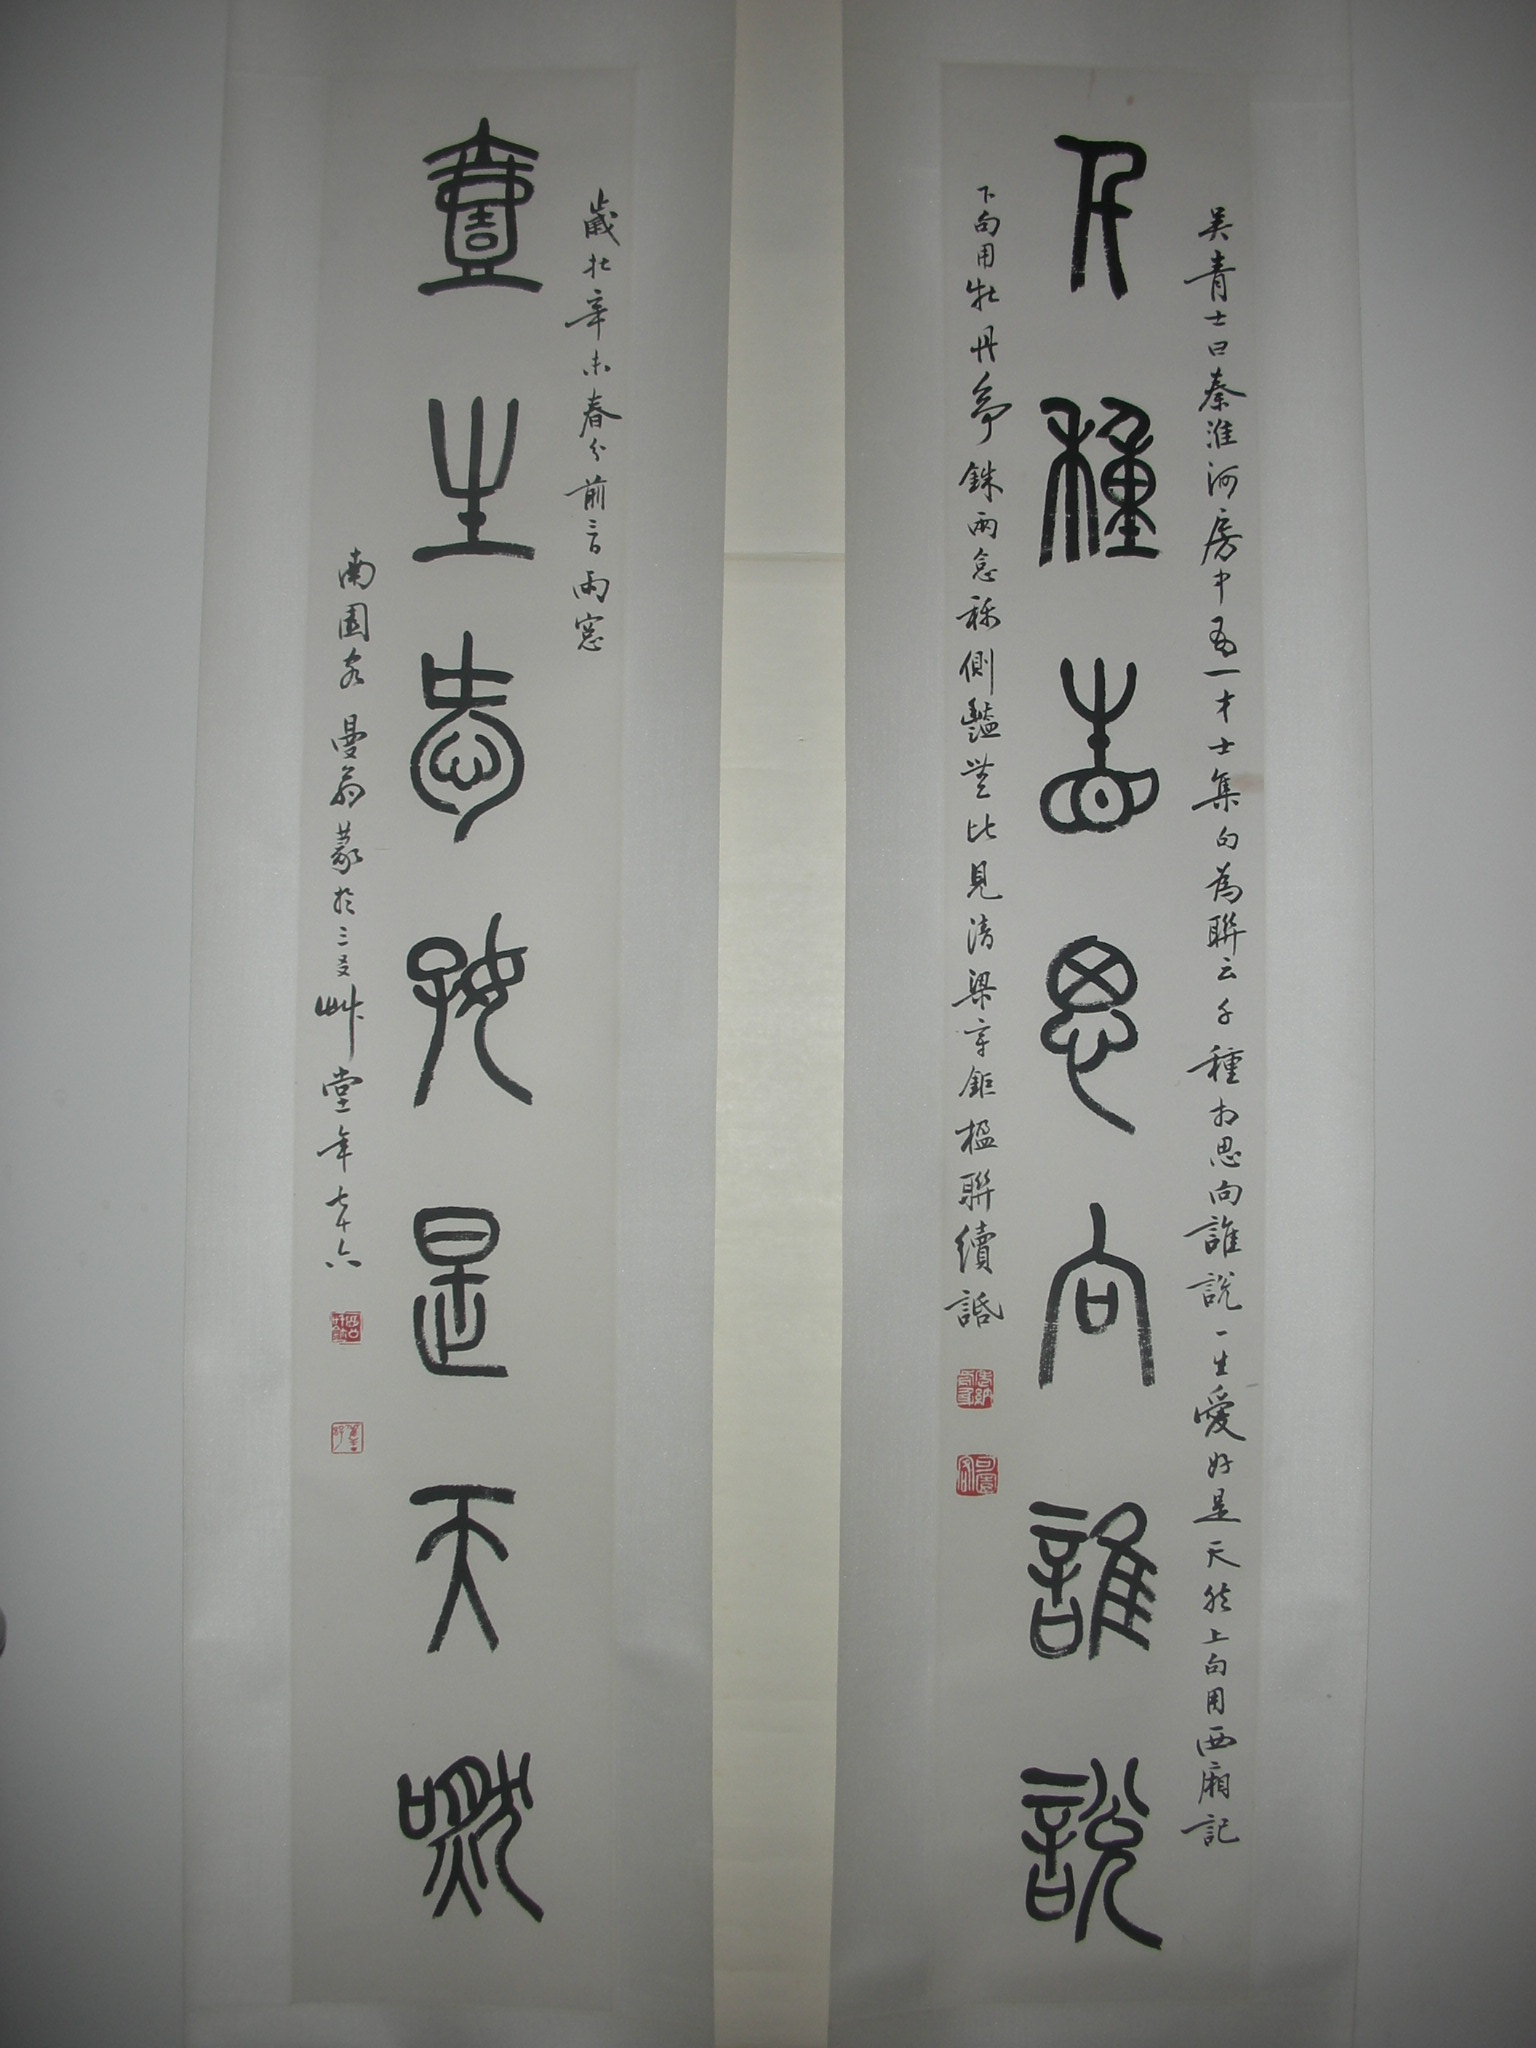 吳青士曰秦淮河房中有一才士集句為聯云千種相思向誰說一生愛好是天然上句用西廂記
千種相思向誰說
下句用牡丹亭銖兩悉稱側豔無比見清梁章鉅楹聯續話
歲在辛未春分前二日雨窗
壹生愛好是天然
南園客曼翁篆於三友艸堂年七十六